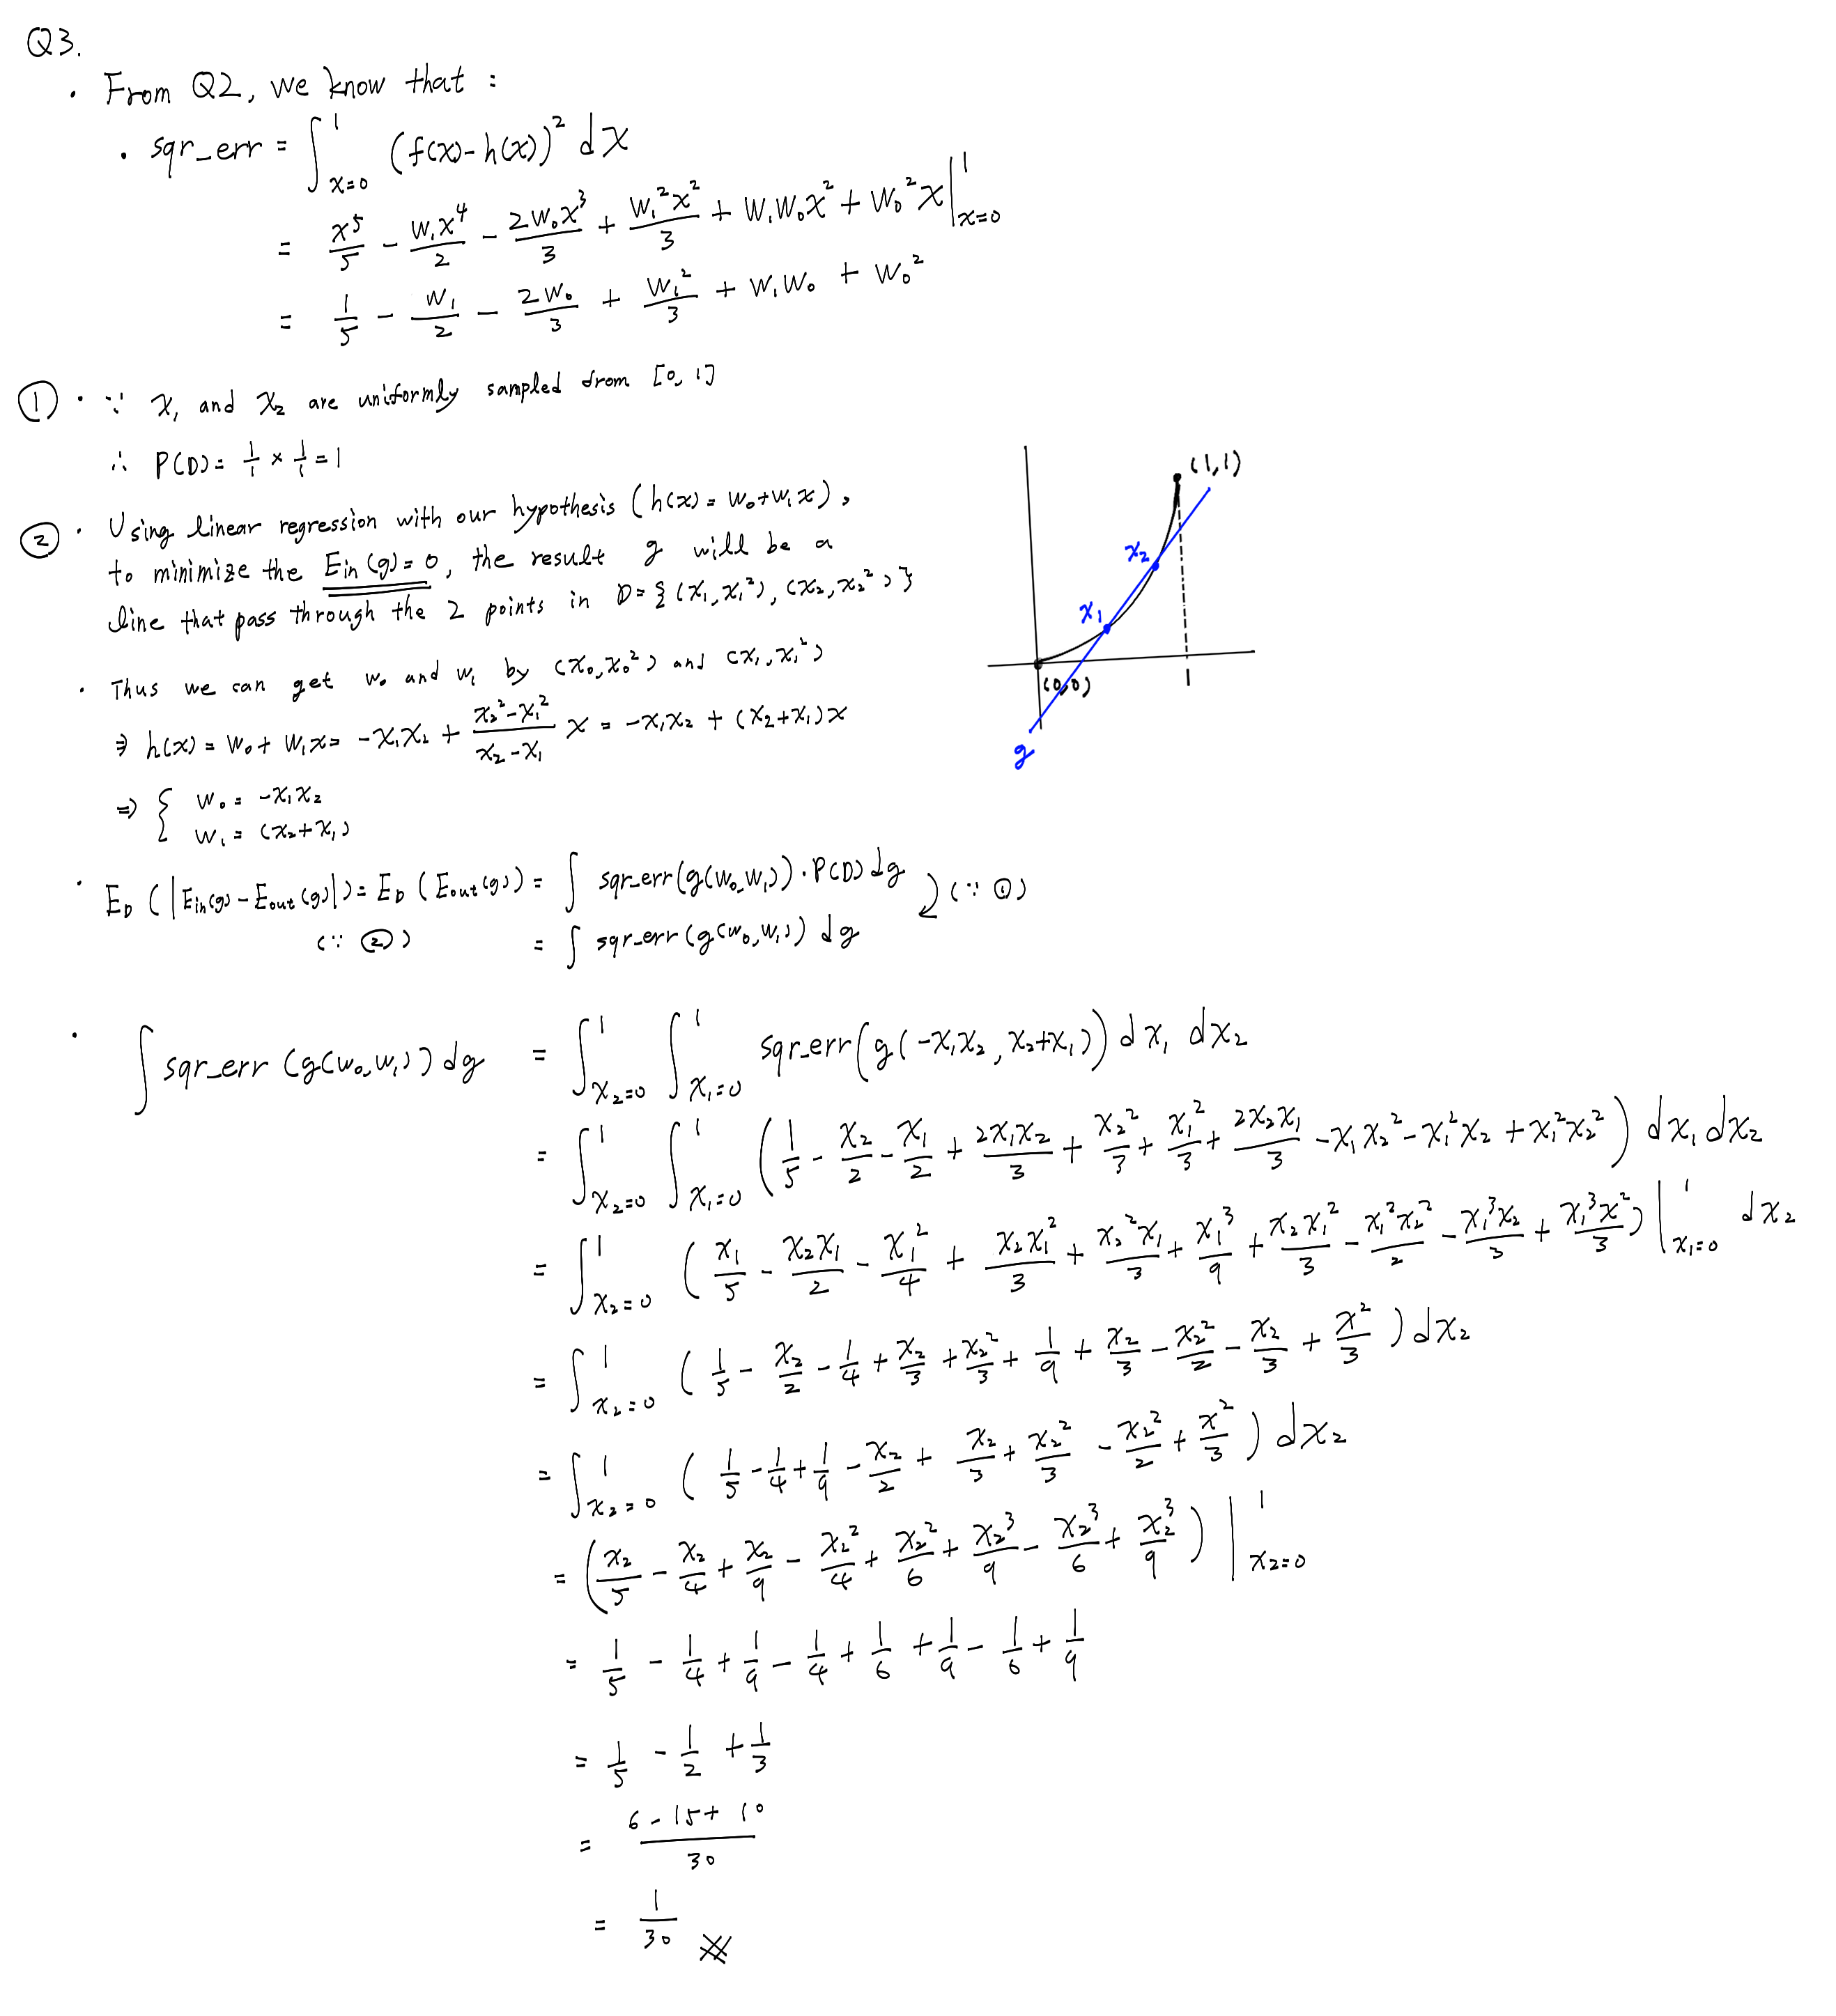 Q3.
· From Q2, we know that :
· sqr_err = ∫_{x=0}^{1} (f(x)-h(x))² dx
= x⁵/5 - w₁x⁴/2 - 2w₀x³/3 + w₁²x²/3 + w₁w₀x² + w₀²x |_{x=0}^{1}
= 1/5 - w₁/2 - 2w₀/3 + w₁²/3 + w₁w₀ + w₀²
① · ∵ x₁ and x₂ are uniformly sampled from [0, 1]
∴ P(D) = 1/1 × 1/1 = 1
② · Using linear regression with our hypothesis (h(x) = w₀+w₁x),
to minimize the Ein(g) = 0, the result g will be a
line that pass through the 2 points in D = {(x₁, x₁²), (x₂, x₂²)}
(1,1)
x₂
x₁
(0,0)
1
g
· Thus we can get w₀ and w₁ by (x₀, x₀²) and (x₁, x₁²)
⇒ h(x) = w₀ + w₁x = -x₁x₂ + (x₂²-x₁²)/(x₂-x₁) x = -x₁x₂ + (x₂+x₁)x
⇒ { w₀ = -x₁x₂
w₁ = (x₂+x₁)
· E_D(|Ein(g) - Eout(g)|) = E_D(Eout(g)) = ∫ sqr_err(g(w₀,w₁)) · P(D) dg (∵ ①)
(∵ ②) = ∫ sqr_err(g(w₀,w₁)) dg
· ∫ sqr_err(g(w₀,w₁)) dg = ∫_{x₂=0}^{1} ∫_{x₁=0}^{1} sqr_err(g(-x₁x₂, x₂+x₁)) dx₁ dx₂
= ∫_{x₂=0}^{1} ∫_{x₁=0}^{1} (1/5 - x₂/2 - x₁/2 + 2x₁x₂/3 + x₂²/3 + x₁²/3 + 2x₂x₁/3 - x₁x₂² - x₁²x₂ + x₁²x₂²) dx₁ dx₂
= ∫_{x₂=0}^{1} (x₁/5 - x₂x₁/2 - x₁²/4 + x₂x₁²/3 + x₂²x₁/3 + x₁³/9 + x₂x₁²/3 - x₁²x₂²/2 - x₁³x₂/3 + x₁³x²/3) |_{x₁=0}^{1} dx₂
= ∫_{x₂=0}^{1} (1/5 - x₂/2 - 1/4 + x₂/3 + x₂²/3 + 1/9 + x₂/3 - x₂²/2 - x₂/3 + x²/3) dx₂
= ∫_{x₂=0}^{1} (1/5 - 1/4 + 1/9 - x₂/2 + x₂/3 + x₂²/3 - x₂²/2 + x²/3) dx₂
= (x₂/5 - x₂/4 + x₂/9 - x₂²/4 + x₂²/6 + x₂³/9 - x₂³/6 + x₂³/9) |_{x₂=0}^{1}
= 1/5 - 1/4 + 1/9 - 1/4 + 1/6 + 1/9 - 1/6 + 1/9
= 1/5 - 1/2 + 1/3
= (6 - 15 + 10)/30
= 1/30